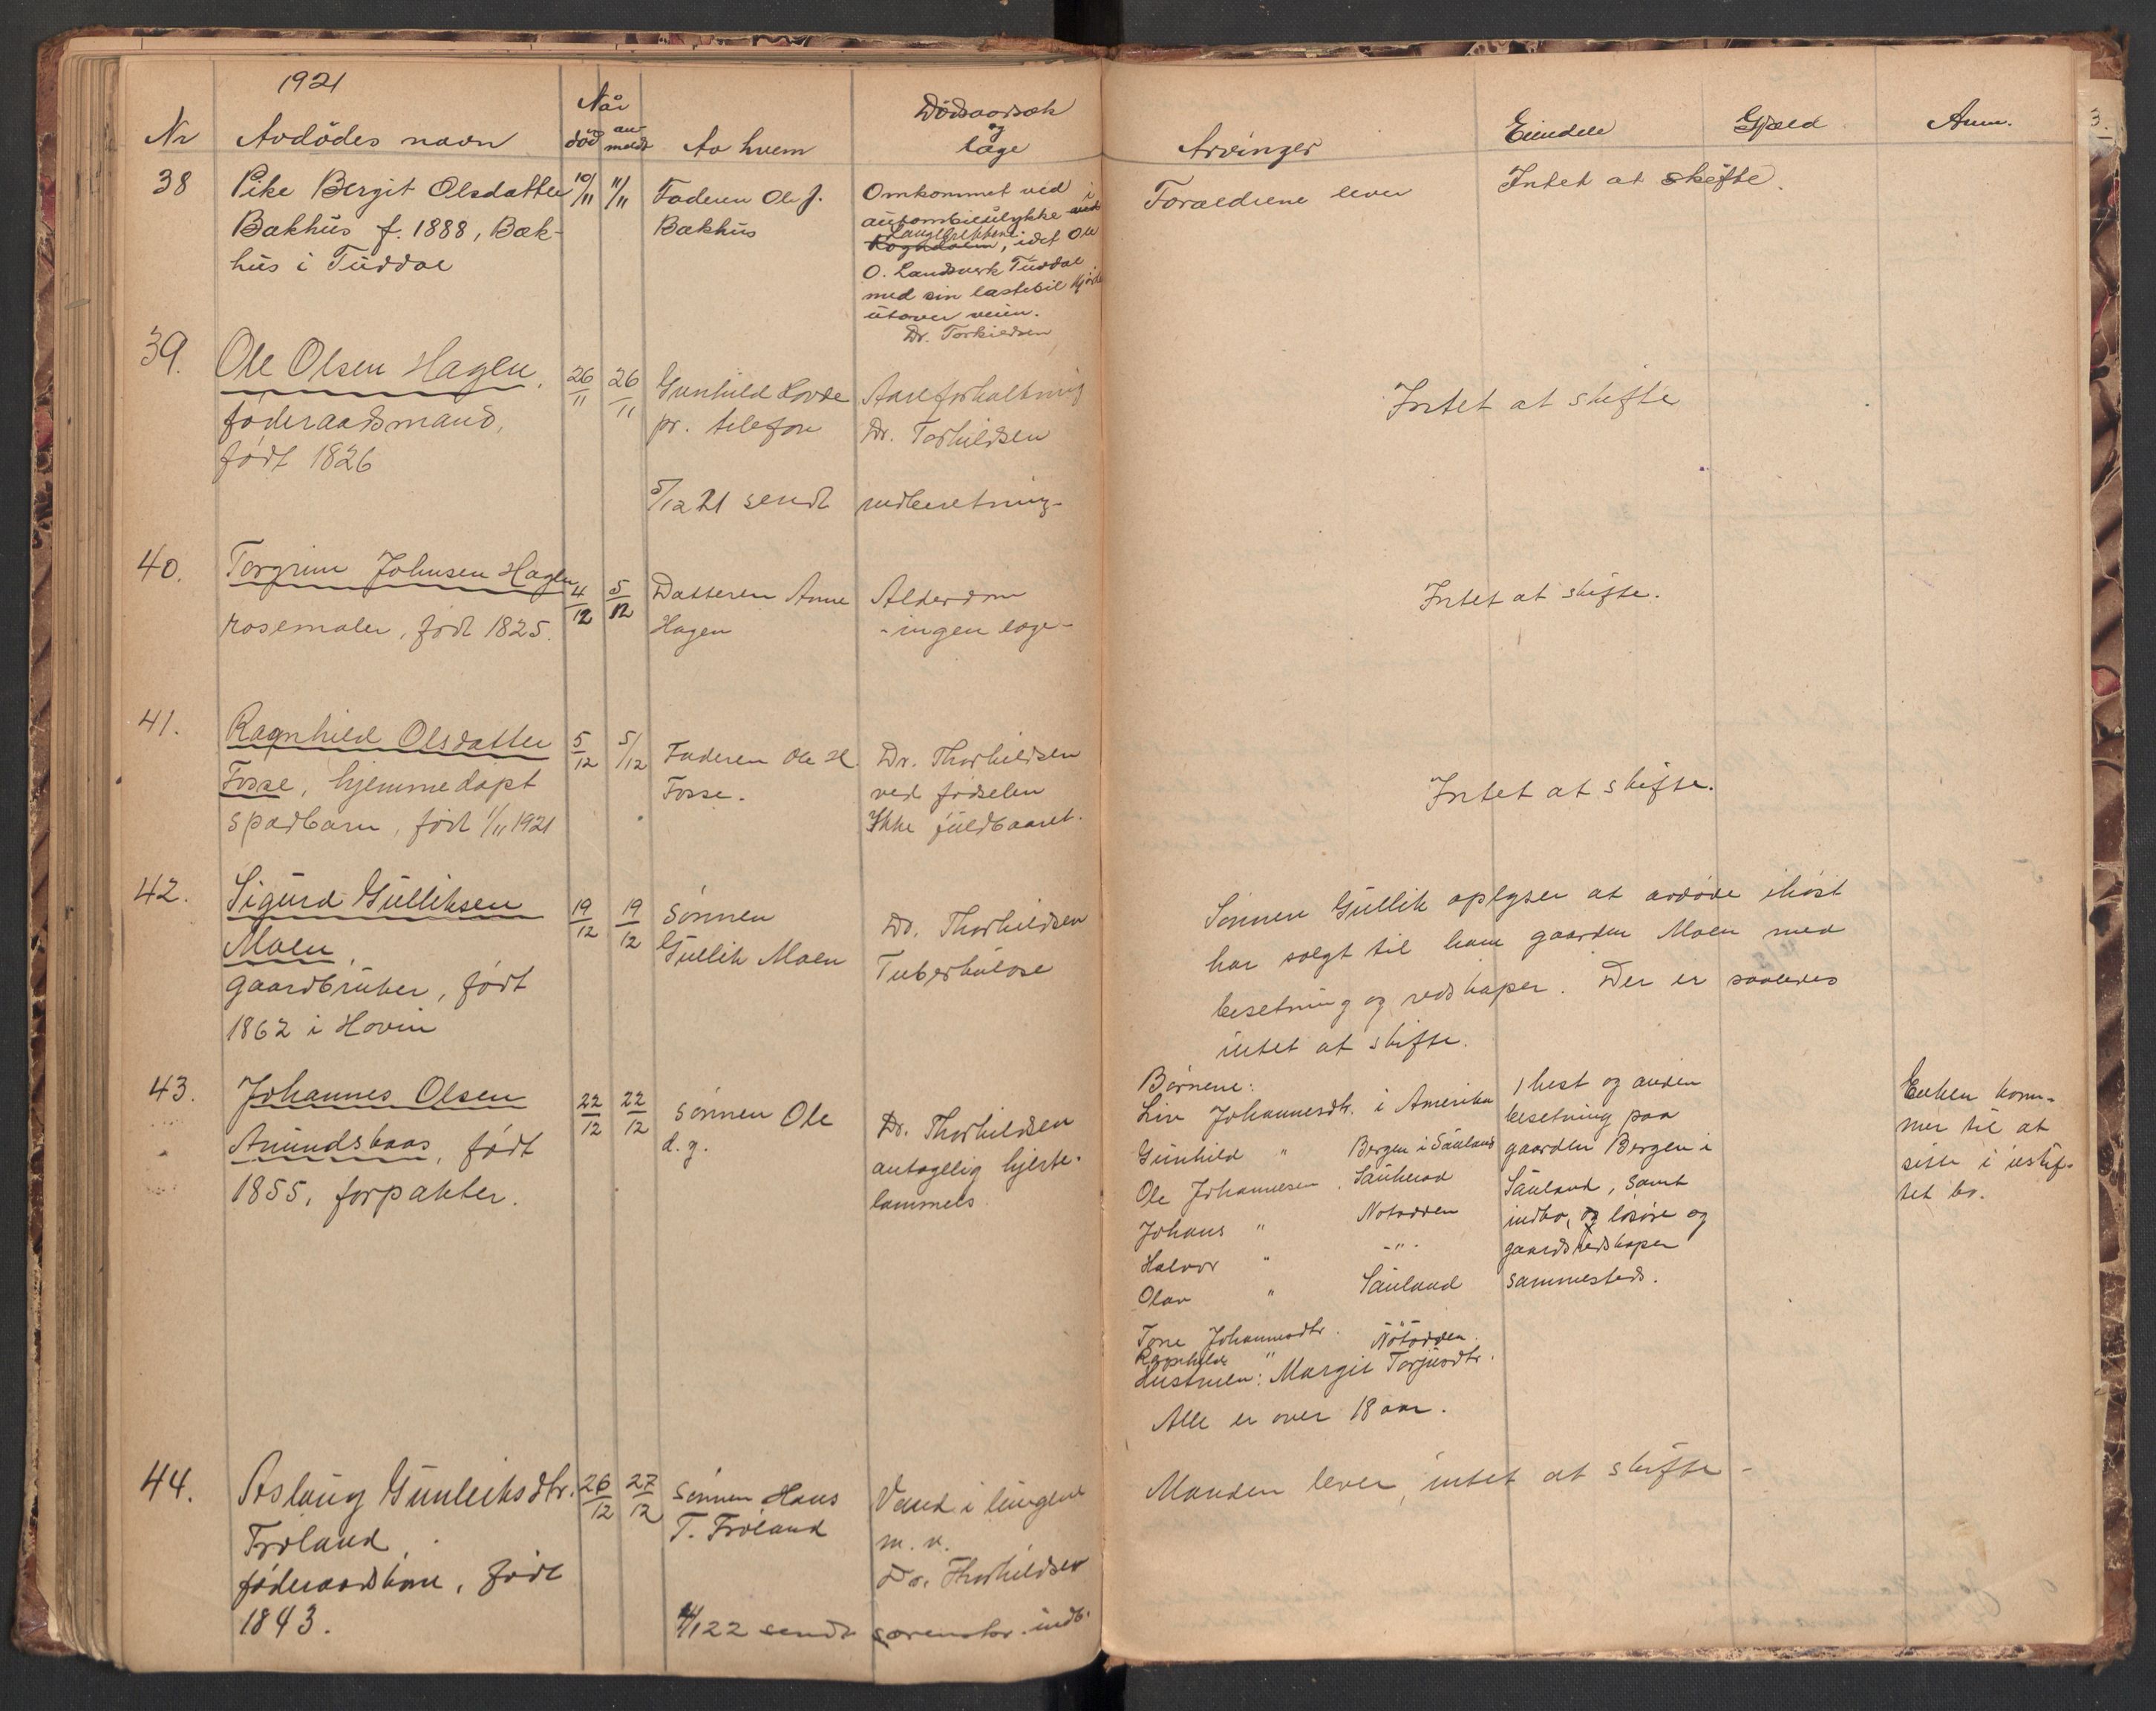 1921
Nr Avdödes navn
Når
død an-meldt
Av hvem
Dödsaarsak
og
læge
38 Pike Bergit Olsdatter 10/11 11/11 Faderen Ole J.
Bakhus f. 1888, Bak- Bakhus
hus i Tuddal
Omkommet ved
automobilulykke i
Langebrekkene, idet Ole
O. Landsverk Tuddal
med sin lastebil kjørte
utover veien.
Dr. Torkildsen
39. Ole Olsen Hagen, 26/11 26/11 Gunhild Lovde Aareforkaltning
føderaadsmand, pr. telefon Dr. Torkildsen
født 1826
5/12 21 sendt indberetning-
40. Torgrim Johnsen Hagen 4/12 5/12 Datteren Anne Alderdom
rosemaler, født 1825. Hagen -ingen læge-
41. Ragnhild Olsdatter 5/12 5/12 Faderen Ole H. Dr. Thorkildsen
Fosse, hjemmedøpt Fosse. ved fødselen
spædbarn, født 1/11 1921 Ikke fuldbaaret.
42. Sigurd Gulliksen 19/12 19/12 Sønnen Dr. Thorkildsen
Moen, Gullik Moen Tuberkulose
gaardbruker, født
1862 i Hovin
43. Johannes Olsen 22/12 22/12 Sønnen Ole Dr. Thorkildsen
Amundskaas, født d.y. antagelig hjerte-
1855, forpakter. lammels
44. Aslaug Gunleiksdtr. 26/12 27/12 Sønnen Hans Vand i lungene
Frøland, T. Frøland m. v.
føderaadskone, født Dr. Thorkildsen
1843.
4/1 22 sendt sorenskr. indb.
Arvinger Eiendele Gjæld Anm.
Forældrene lever Intet at skifte.
Intet at skifte
Intet at skifte.
Intet at skifte.
Sønnen Gullik oplyser at avdøde ihøst
har solgt til ham gaarden Moen med
besetning og redskaper. Der er saaledes
intet at skifte.
Børnene:
Liv Johannesdtr. i Amerika
Gunhild " Bergen i Sauland
Ole Johannesen, Sauherad
Johans " Notodden
Halvor " -"-
Olav " Sauland
Tone Johannesdtr. Notodden
Ragnhild " "
Hustruen: Margit Torjusdtr.
Alle er over 18 aar.
1 hest og anden
besetning paa
gaarden Bergen i
Sauland, samt
indbo, og løsøre og
gaardsredskaper
sammesteds.
Enken kom-
mer til at
sitte i uskif-
tet bo.
Manden lever, intet at skifte -